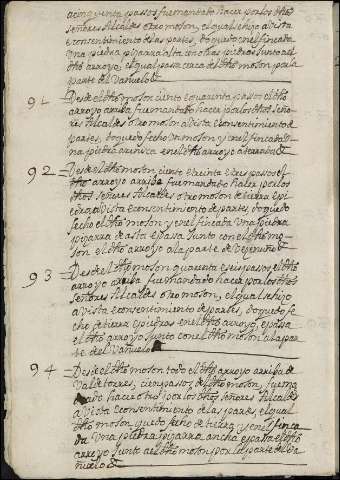 a cinquenta pasos fue mandado hacer por los dhos
señores Alcaldes otro moxon, el qual se hijo a vista
e consentimiento de las partes, do quedo en el fincada
una piedra pizarra alta con otras piedras junto al
dho arroyo, el qual pasa cerca del dho moxon por la
parte del Vañuelo
91 = Desde el dho moxon ciento e quarenta pasos el dho
arroyo arriba, fue mandado hacer por los dhos seño-
res Alcaldes otro moxon a vista e consentimiento de
partes, do quedo fecho un moxon, y en el fincada
una piedra en el dho arroyo
92 = Desde el dho moxon, ciento e treinta e tres pasos el
dho arroyo arriba fue mandado hacer por los
dhos señores Alcaldes otro moxon de tierra e pie-
dra a vista e consentimiento de partes, do quedo
fecho el dho moxon, y en el fincada una piedra
pizarra de asta espada junto con el dho mo-
xon, el dho arroyo a la parte de
93 = Desde el dho moxon quarenta e seis pasos, el dho
arroyo arriba fue mandado hacer por los dhos
Señores Alcaldes otro moxon, el qual se hijo
a vista e consentimiento de partes, do quedo fe-
cho de tierra e piedras en el dho arroyo, e pasa
el dho arroyo junto con el dho moxon a la par-
te del Vañuelo
94 = Desde el dho moxon todo el dho arroyo arriba de
Valdetorres, cien pasos del dho moxon, fue man-
dado hacer otro por los dhos señores Alcaldes
a vista e consentimiento de las partes, el qual
dho moxon quedo fecho de tierra y en el finca-
da una piedra pizarra, ancha e pasa el dho
arroyo junto al dho moxon por la parte del Va-
ñuelo